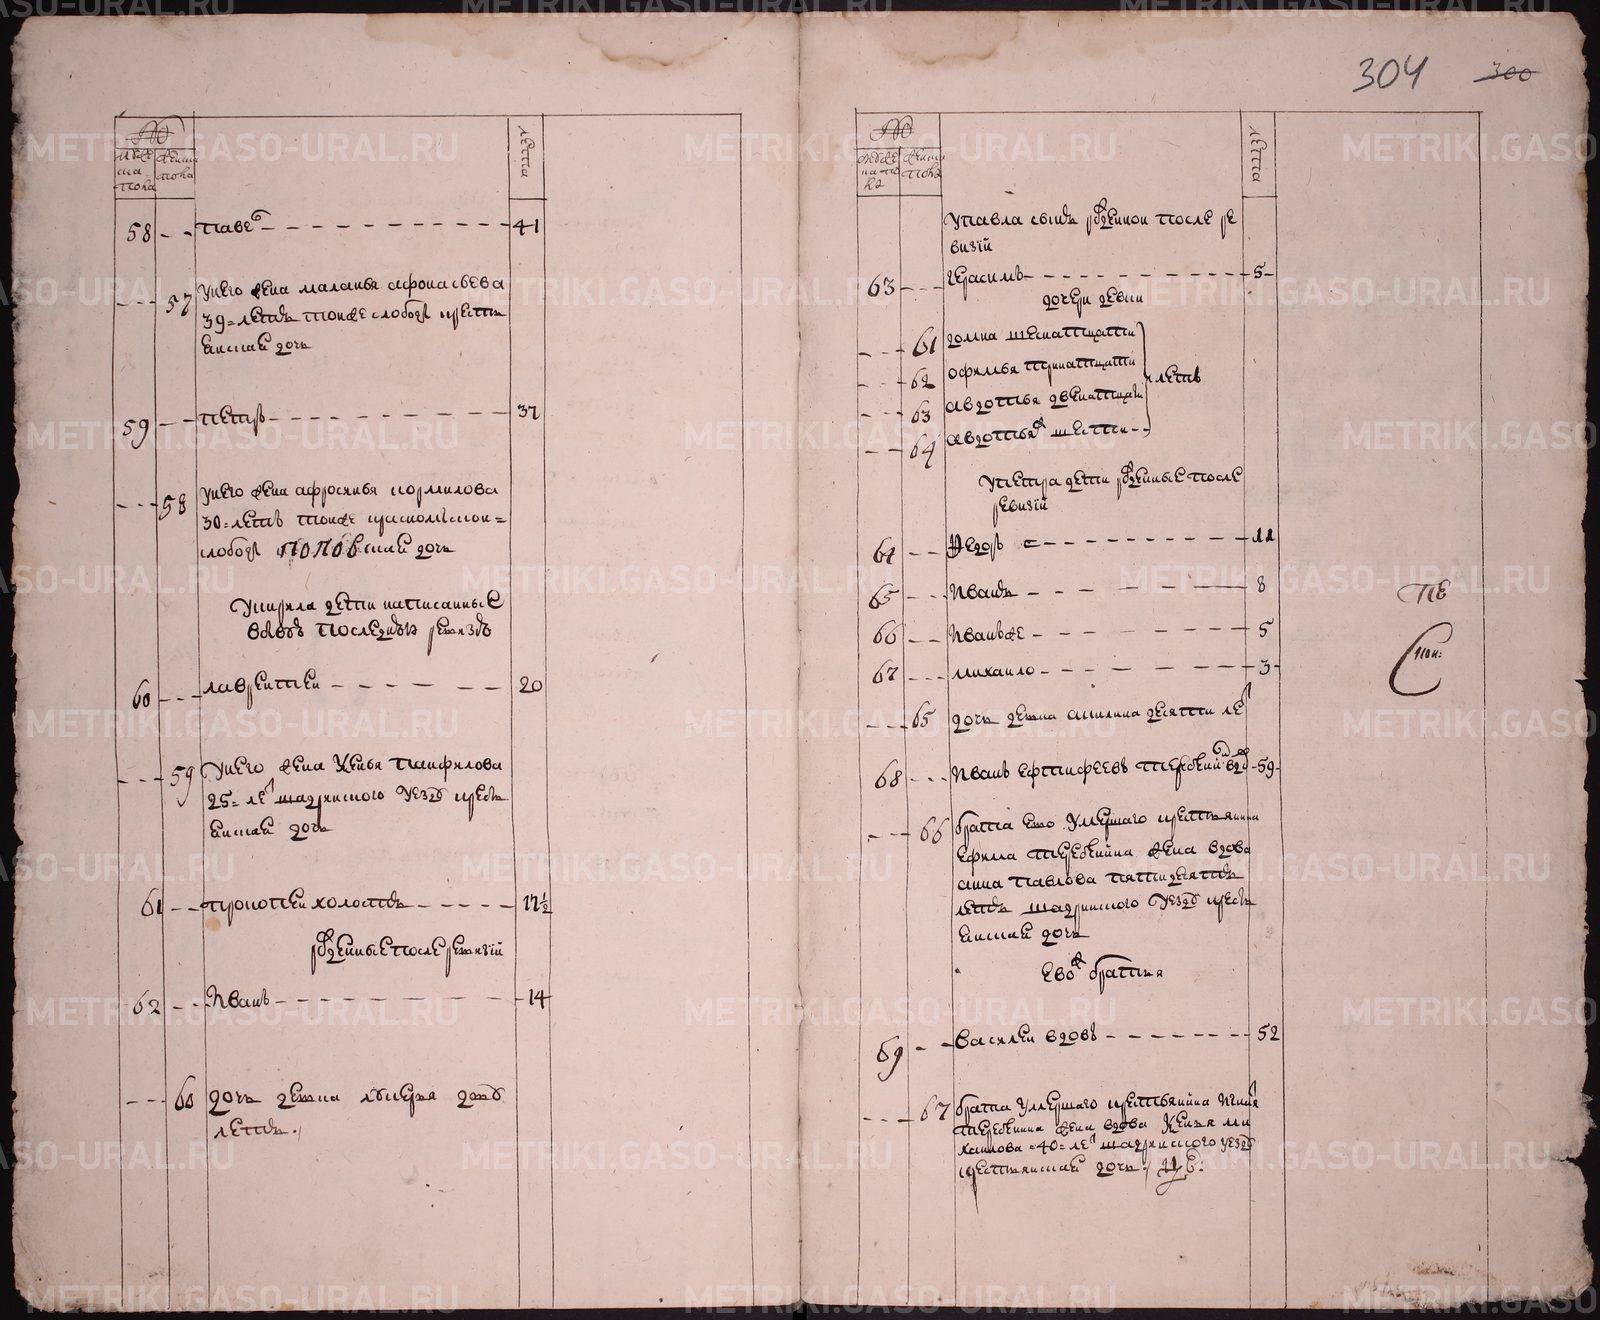 304 300
№
мужеска пола
женска пола
лета
58 - - павел - - - 41
- - - 57 унего жена маланья афонасьева
39 = летъ тойже слободы кресть
янская дочь
59 - - петръ - - - 37
- - - 58 унего жена афросинья кормилова
30 = летъ тойже красномыской =
слободы поповская дочь
Укирила дети написанныя
вовъ последнъю ревизъ
60 - - - лаврентей - - - 20
- - - 59 Унего жена Ксенья панфилова
25 = лет шадринского уезду кресть
янская дочь
61 - - прокопей холостъ - - - 17½
рожденныеъ после ревизiй
62 - - Иванъ - - - 14
- - - 60 дочь девка лукерья двъ
летъ
№
мужеска пола
женска пола
лета
Упавла сынъ рожденной после ре
визiй
63 - - - герасимъ - - - 5
дочери девки
- - - 61 домна шеснатцати
- - - 62 офимья тринатцати
летъ
- - - 63 авдотья двенатцати
- - - 64 авдотьяж шести - -
Упетра дети рожденные после
ревизiй
64 - - Федоръ - - - 11
65 - - - Иванъ - - - 8
66 - - - Иванъже - - - 5
67 - - - михайло - - - 3
- - - 65 дочь девка акилина десяти лет
68 - - - Иванъ ефтифеевъ - 59
- - - 66 брата ево умершаго крестьянина
ефима жена вдова
анна павлова пятидесятъ
летъ шадринского уезду кресть
янская дочь
евож братья
69 - - василей вдовъ - - - 52
- - - 67 брата умершаго крестьянина
жена вдова Ксенья ми
хайлова = 40 = лет шадринского уезду
крестьянская дочь